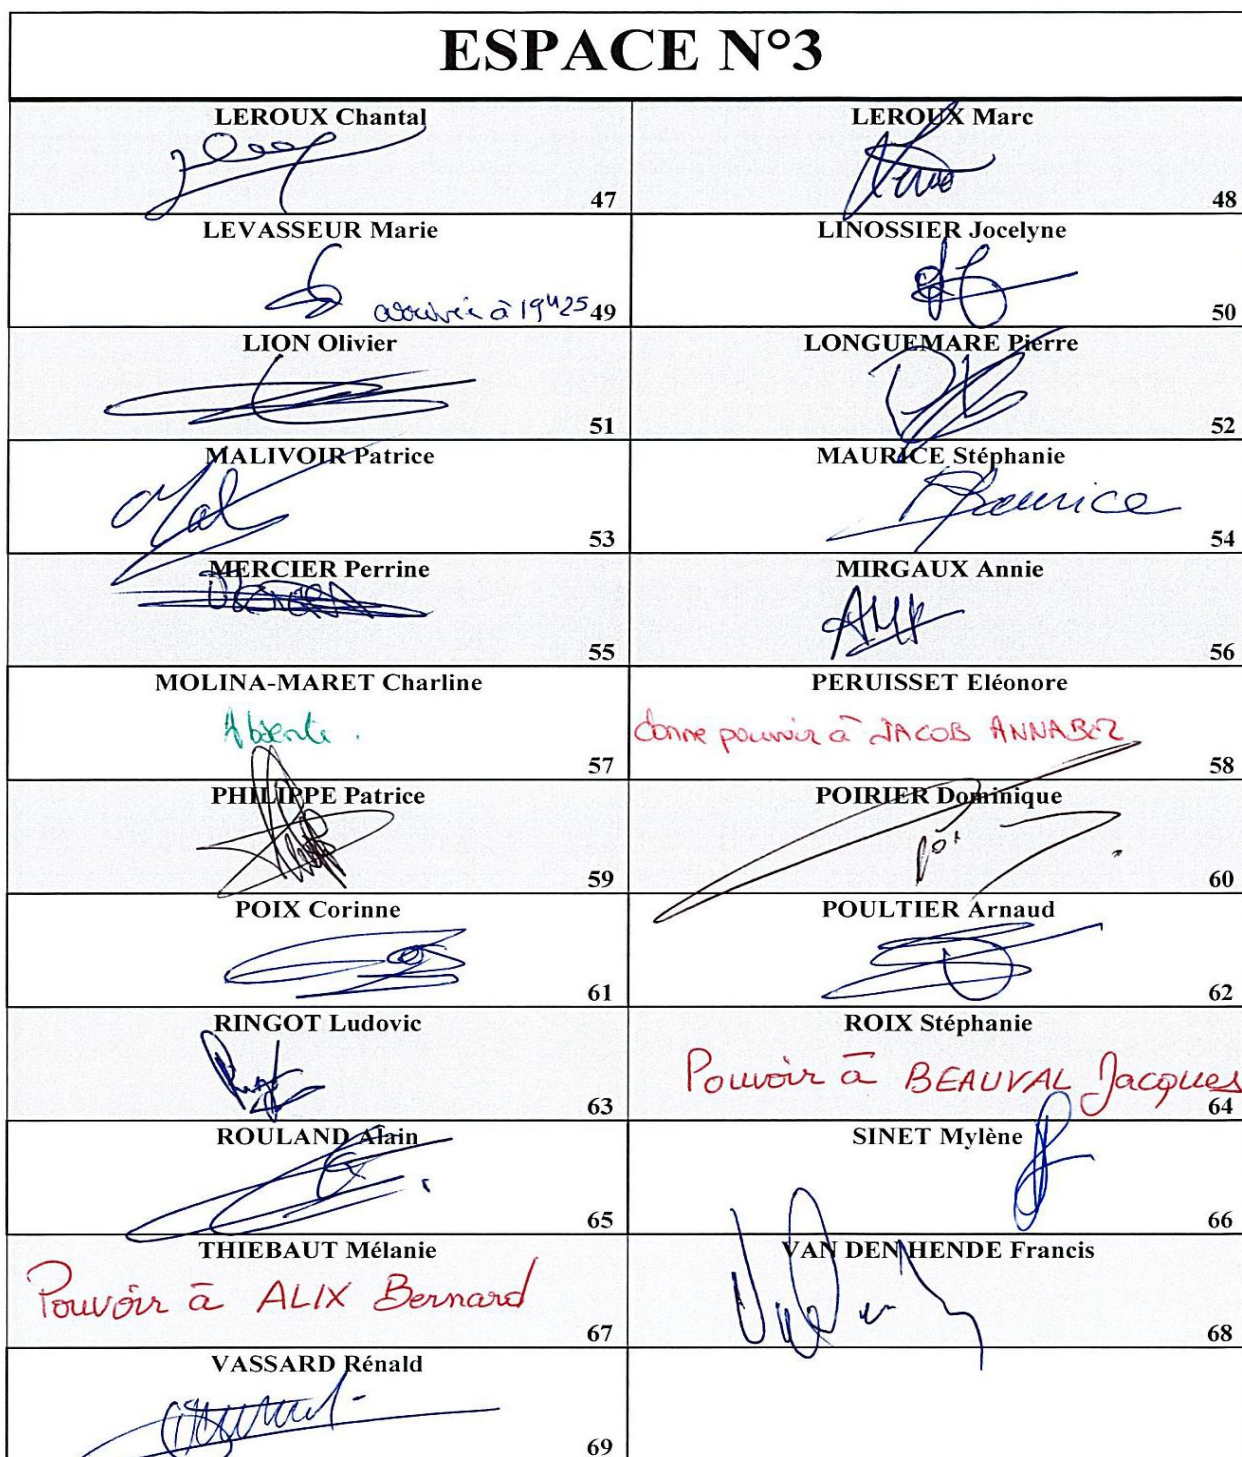 ESPACE N°3
LEROUX Chantal
47
LEROUX Marc
48
LEVASSEUR Marie
arrivée à 19H25
49
LINOSSIER Jocelyne
50
LION Olivier
51
LONGUEMARE Pierre
52
MALIVOIR Patrice
Mal
53
MAURICE Stéphanie
Maurice
54
MERCIER Perrine
55
MIRGAUX Annie
56
MOLINA-MARET Charline
Absente.
57
PERUISSET Eléonore
donne pouvoir à JACOB ANNABEL
58
PHILIPPE Patrice
59
POIRIER Dominique
Poi
60
POIX Corinne
61
POULTIER Arnaud
62
RINGOT Ludovic
63
ROIX Stéphanie
Pouvoir à BEAUVAL Jacques
64
ROULAND Alain
65
SINET Mylène
66
THIEBAUT Mélanie
Pouvoir à ALIX Bernard
67
VAN DEN HENDE Francis
68
VASSARD Rénald
69